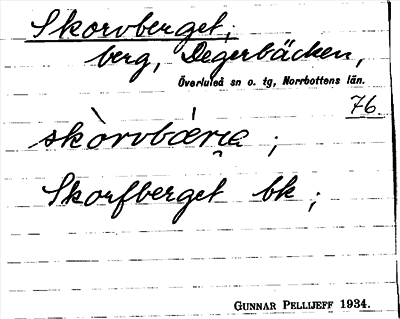 Skorvberget,
berg, Degerbäcken,
Överluleå sn o. tg, Norrbottens län.
76.
skòrvbærjə ;
Skorfberget bk ;
GUNNAR PELLIJEFF 1934.